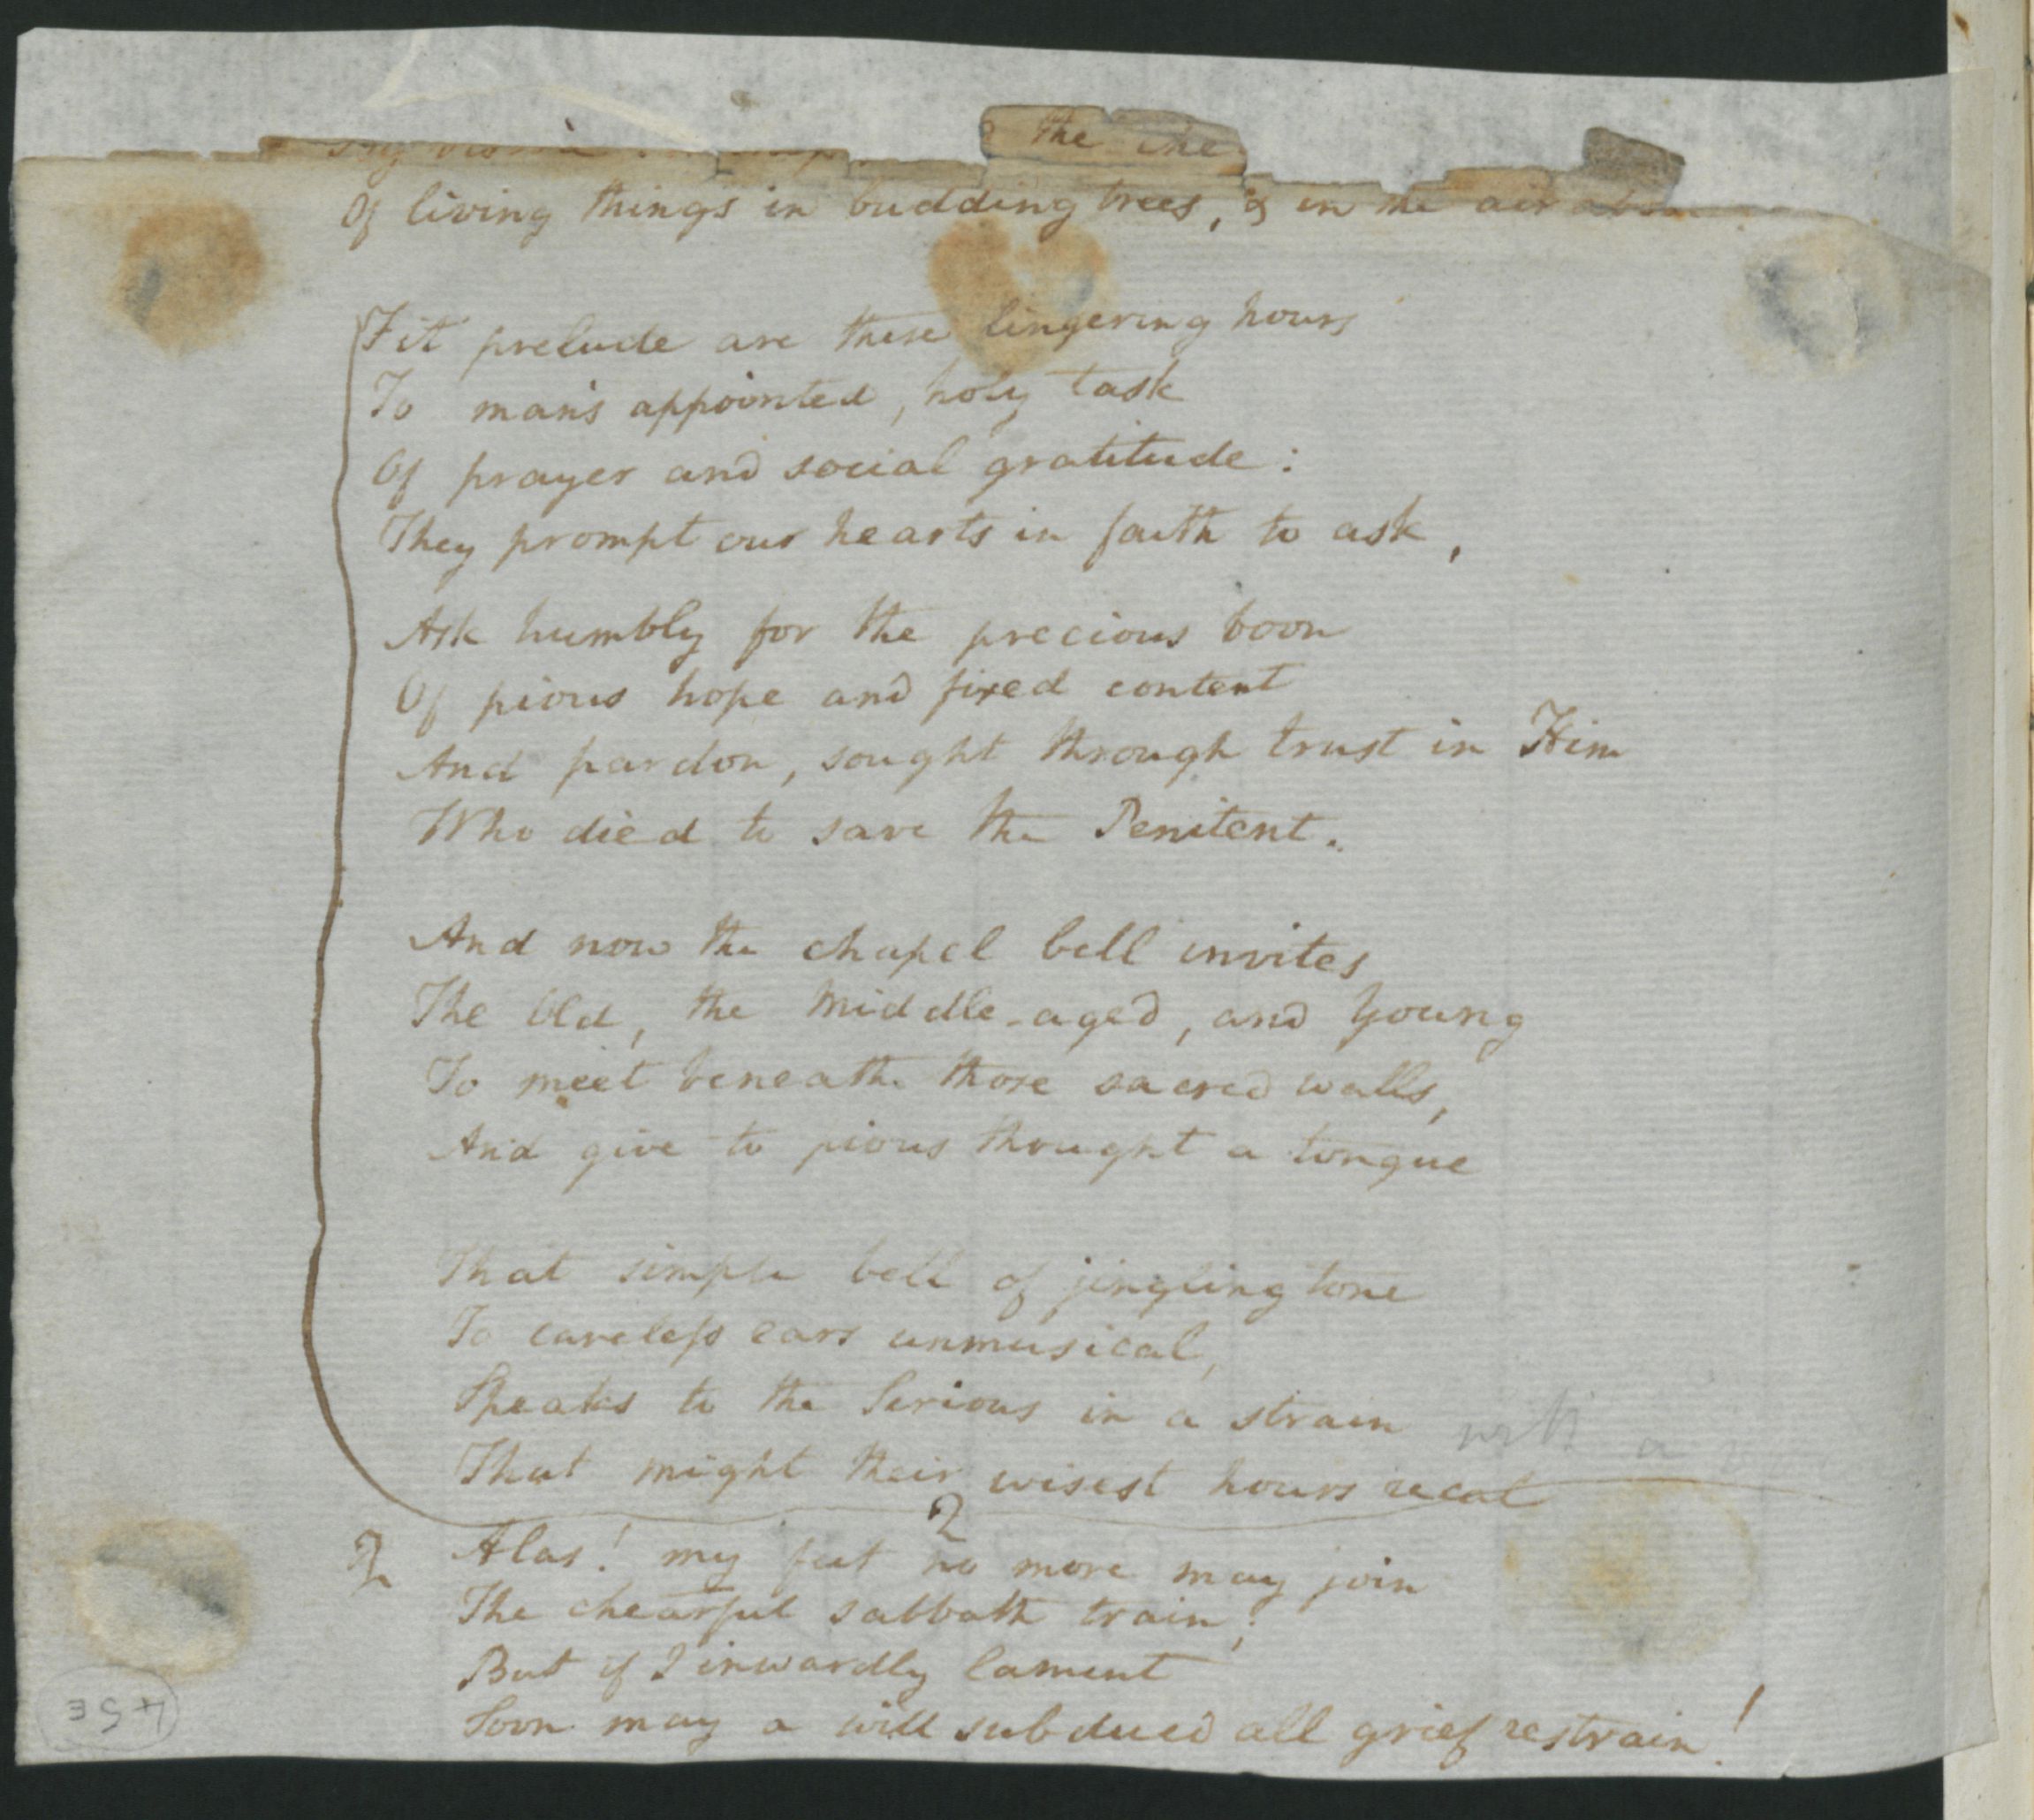 the
Of living things in budding trees, & in the air
Fit prelude are these lingering hours
To man's appointed, holy task
Of prayer and social gratitude:
They prompt our hearts in faith to ask,
Ask humbly for the precious boon
Of pious hope and fixed content
And pardon, sought through trust in Him
Who died to save the Penitent.
And now the chapel bell invites
The Old, the Middle-aged, and Young
To meet beneath those sacred walls,
And give to pious thought a tongue
That simple bell of jingling tone
To careless ears unmusical,
Speaks to the Serious in a strain
That might their wisest hours recal
2
Alas! my feet no more may join
The chearful sabbath train;
But if I inwardly lament
Soon may a will subdued all grief restrain!